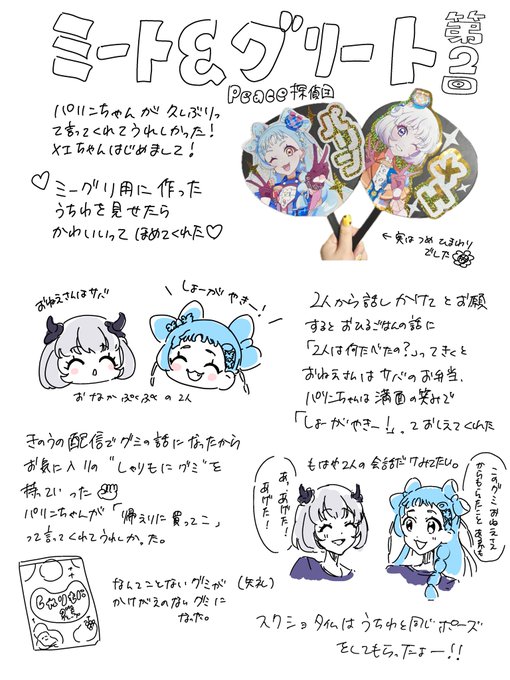 ミート&グリート 第2回
Peace探偵団
パリンちゃんが久しぶりって言ってくれてうれしかった!
メエちゃんはじめまして!
♡ ミーグリ用に作った
うちわを見せたら
かわいいって ほめてくれた♡
メエ
←実はつめひまわり
でした
おねえさんはサバ
しょーがやきー!
おなかぷくぷくの2人
2人から話しかけてとお願
するとおひるごはんの話に
「2人は何たべたの?」ってきくと
おねえさんはサバのお弁当、
パリンちゃんは満面の笑みで
「しょーがやきー!」っておしえてくれた
きのうの配信でグミの話になったから
お気に入りの"しゃりもにグミ"を
持っていった
パリンちゃんが「帰えりに買ってこ」
って言ってくれてうれしかった。
もはや2人の会話だけみてたい。
あ、あげた!
あげた!
このグミおねえさん
からもらったことあるかも
しゃりもに
なんてことないグミが (失礼)
かけがえのないグミに
なった。
スクショタイムは うちわと同じポーズ
をしてもらったよー!!